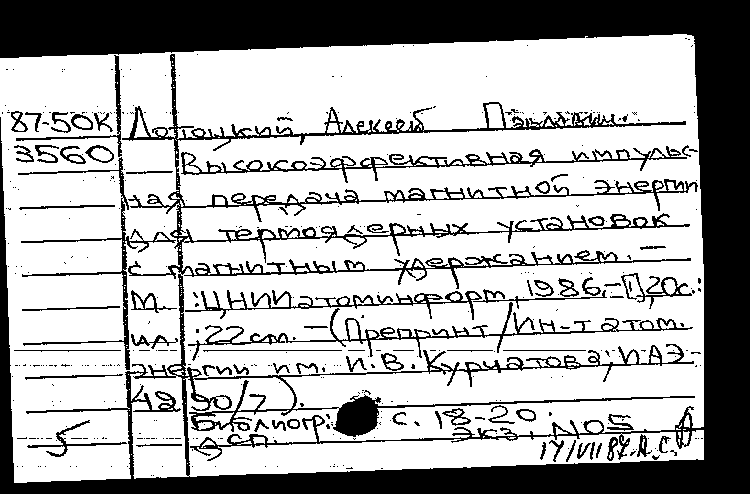 87-50К Лотоцкий, Алексей Павлович.
3560 Высокоэффективная импульс-
ная передача магнитной энергии
для термоядерных установок
с магнитным удержанием. —
М. : ЦНИИатоминформ, 1986. – [1], 20 с. :
ил. ; 22 см. — (Препринт / Ин-т атом.
энергии им. И.В. Курчатова; ИАЭ-
4290/7).
Библиогр.: с. 18-20.
5 экз. N05.
17/VII 87. А.С.